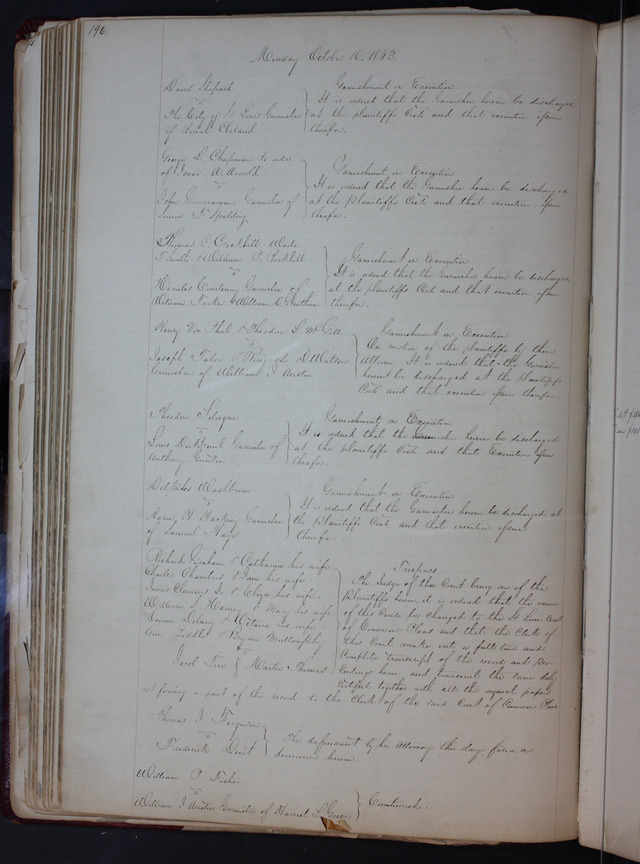 196
Monday October 16. 1843.
David Shepard
vs
The City of St Louis Garnishee
of
Garnishment on Execution
It is ordered that the Garnishee herein be discharged
at the plaintiffs Costs and that execution issue
therefor.
George L. Chapman to use
of Isaac A. Arnold
vs
John Garnishee of
F. Spalding
Garnishment on Execution
It is ordered that the Garnishee herein be discharged
at the plaintiffs Costs and that execution issue
therefor.
Thomas C. Rockhill
Smith & William P. Rockhill
vs
Garnishee of
William & William D.
Garnishment on Execution
It is ordered that the Garnishee herein be discharged
at the plaintiffs Costs and that execution issue
therefor.
Henry Von Phul & Theodore L. McGill
vs
Joseph Tabor & D. Watson
Garnishees of William J. Austin
Garnishment on Execution
On motion of the plaintiffs by their
Attorney It is ordered that the Garnishees
herein be discharged at the plaintiffs
Costs and that execution issue therefor.
Theodore
vs
Louis Garnishee of
Anthony
Garnishment on Execution
It is ordered that the Garnishee herein be discharged
at the plaintiffs Costs and that Execution issue
therefor.
Delphos Washburn
vs
H. Garnishee
of Samuel
Garnishment on Execution
It is ordered that the Garnishee herein be discharged at
the Plaintiffs Costs and that execution issue
therefor.
Richard Graham & Catharine his wife
Charles Chambers & Jane his wife
James Clemens Jr & Eliza his wife
William S. Harney & Mary his wife
Dennis Delany & Octavia his wife
Ann Biddle & Bryan Mullanphy
vs
Jacob & Martin Thomas
Trespass
The Judge of this Court being one of the
Plaintiffs herein, it is ordered that the venue
of this Cause be changed to the St Louis Court
of Common Pleas and that the Clerk of
this Court make out a full true and
Complete transcript of the record and pro
ceedings herein and transmit the same duly
Certified together with all the original papers
forming a part of the record to the Clerk of the said Court of Common Pleas
Thomas J. Ferguson
vs
Frederick Dent
The defendant by his Attorney this day files a
demurrer herein
William P. Fisher
vs
William J. Austin Garnishee of Harriet L.
Continued.